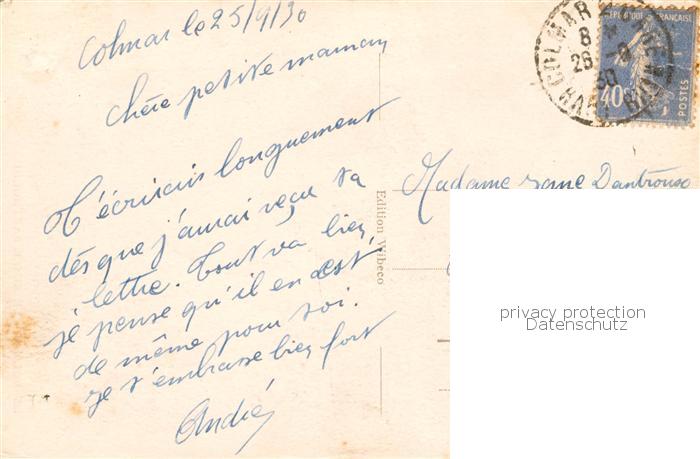 Colmar le 25/9/30
Chère petite maman
T'écrirais longuement
dès que j'aurai reçu ta
lettre. Tout va bien,
je pense qu'il en est
de même pour toi.
Je t'embrasse bien fort
André
Edition Wibeco
COLMAR
8
26 -9
30
HAUT RHIN
REPUBLIQUE FRANÇAISE
40c
POSTES
Madame
privacy protection
Datenschutz